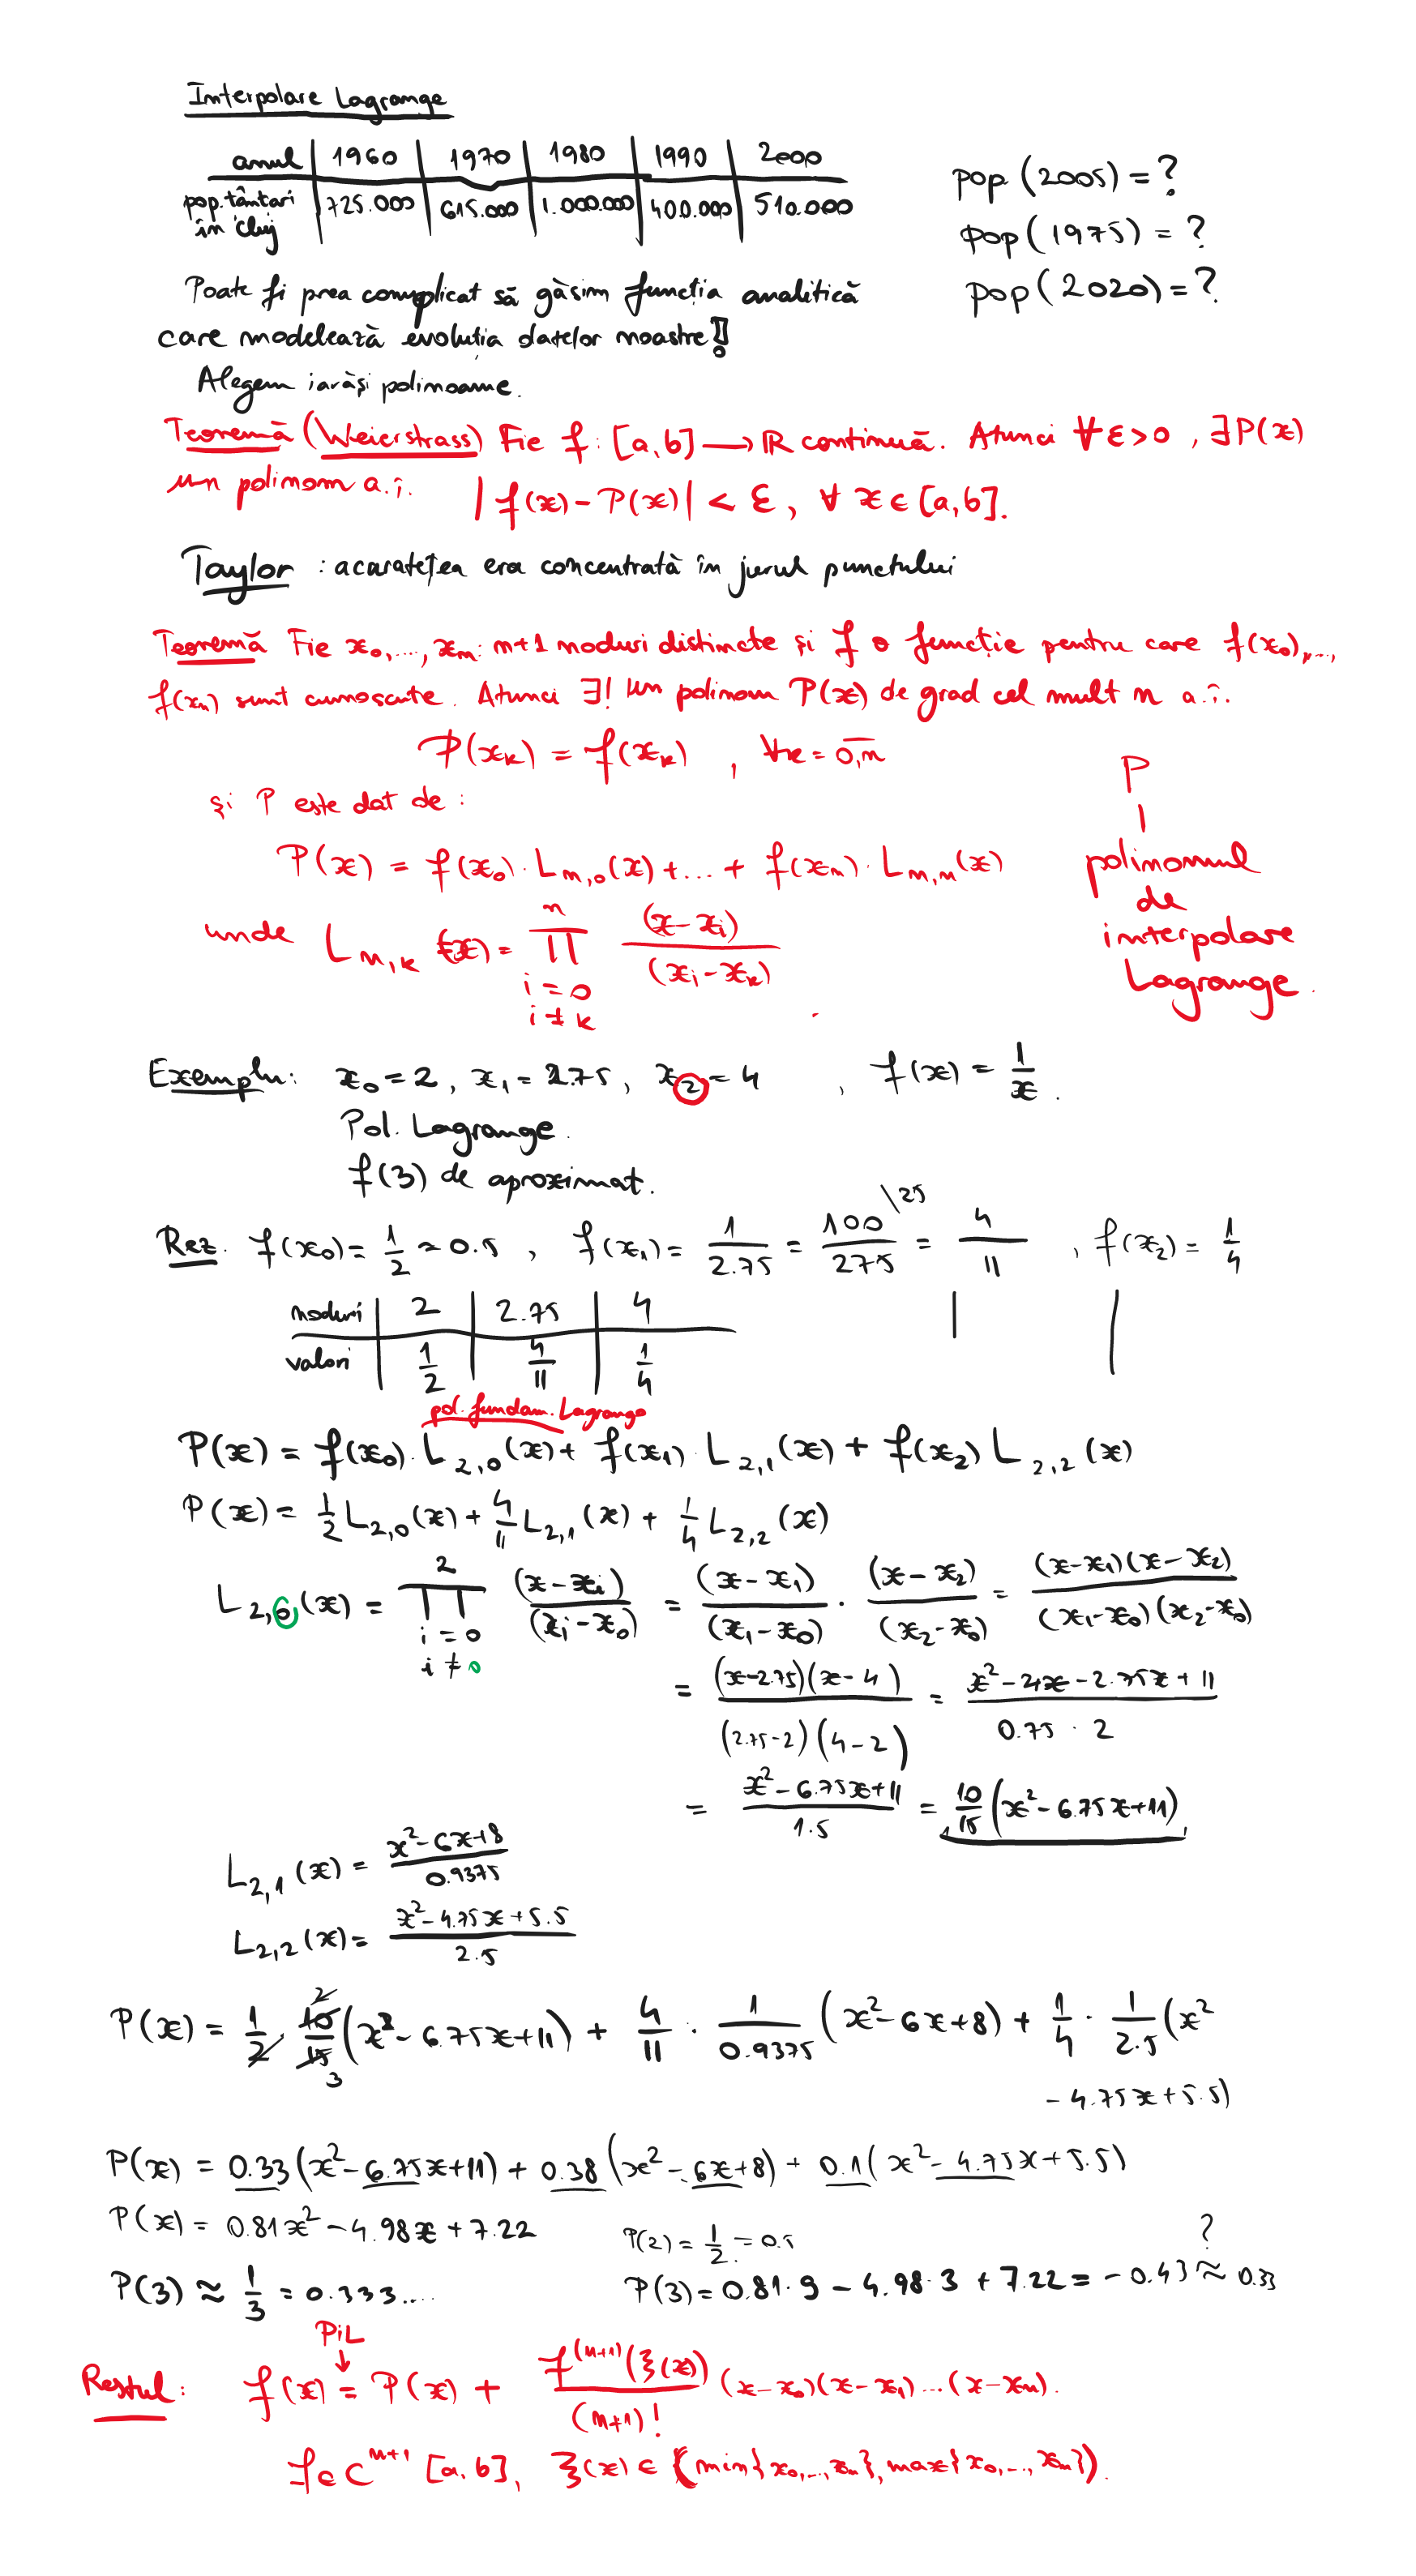 Interpolare Lagrange
anul | 1960 | 1970 | 1980 | 1990 | 2000
pop. tântari în Cluj | 725.000 | 615.000 | 1.000.000 | 400.000 | 510.000
pop (2005) = ?
pop (1975) = ?
pop (2020) = ?
Poate fi prea complicat să găsim funcția analitică
care modelează evoluția datelor noastre!
Alegem iarăși polinoame.
Teoremă (Weierstrass) Fie f : [a,b] → ℝ continuă. Atunci ∀ ε > 0, ∃ P(x)
un polinom a.î. |f(x) - P(x)| < ε, ∀ x ∈ [a,b].
Taylor : acaratețea era concentrată în jurul punctului
Teoremă Fie x₀,...,xₙ: n+1 noduri distincte și f o funcție pentru care f(x₀),...,
f(xₙ) sunt cunoscute. Atunci ∃! un polinom P(x) de grad cel mult n a.î.
P(xₖ) = f(xₖ) , ∀k = 0,n
și P este dat de :
P(x) = f(x₀) · L_{n,0}(x) + ... + f(xₙ) · L_{n,n}(x)
unde L_{n,k}(x) = ∏_{i=0, i≠k}^{n} (x - xᵢ)/(xᵢ - xₖ)
P
|
polinomul
de
interpolare
Lagrange.
Exemplu: x₀ = 2, x₁ = 2.75, x₂ = 4 , f(x) = 1/x.
Pol. Lagrange.
f(3) de aproximat.
Rez. f(x₀) = 1/2 ≈ 0.5 , f(x₁) = 1/2.75 = 100/275 \25 = 4/11 , f(x₂) = 1/4
noduri | 2 | 2.75 | 4
valori | 1/2 | 4/11 | 1/4
pol. fundam. Lagrange
P(x) = f(x₀) · L_{2,0}(x) + f(x₁) · L_{2,1}(x) + f(x₂) L_{2,2}(x)
P(x) = 1/2 L_{2,0}(x) + 4/11 L_{2,1}(x) + 1/4 L_{2,2}(x)
L_{2,0}(x) = ∏_{i=0, i≠0}^{2} (x - xᵢ)/(xᵢ - x₀) = (x - x₁)/(x₁ - x₀) · (x - x₂)/(x₂ - x₀) = (x - x₁)(x - x₂)/(x₁ - x₀)(x₂ - x₀)
= (x - 2.75)(x - 4)/(2.75 - 2)(4 - 2) = (x² - 4x - 2.75x + 11)/(0.75 · 2)
= (x² - 6.75x + 11)/1.5 = 10/15 (x² - 6.75x + 11)
L_{2,1}(x) = (x² - 6x + 8)/0.9375
L_{2,2}(x) = (x² - 4.75x + 5.5)/2.5
P(x) = 1/2 · 10/15 2 3 (x² - 6.75x + 11) + 4/11 · 1/0.9375 (x² - 6x + 8) + 1/4 · 1/2.5 (x²
- 4.75x + 5.5)
P(x) = 0.33 (x² - 6.75x + 11) + 0.38 (x² - 6x + 8) + 0.1 (x² - 4.75x + 5.5)
P(x) = 0.81x² - 4.98x + 7.22
P(2) = 1/2 = 0.5
P(3) ≈ 1/3 = 0.333...
P(3) = 0.81 · 9 - 4.98 · 3 + 7.22 = - 0.43 ?≈ 0.33
PiL
↓
Restul: f(x) = P(x) + f^{(n+1)}(ξ(x))/(n+1)! (x - x₀)(x - x₁)...(x - xₙ).
f ∈ Cⁿ⁺¹ [a,b], ξ(x) ∈ (min{x₀,...,xₙ}, max{x₀,...,xₙ}).